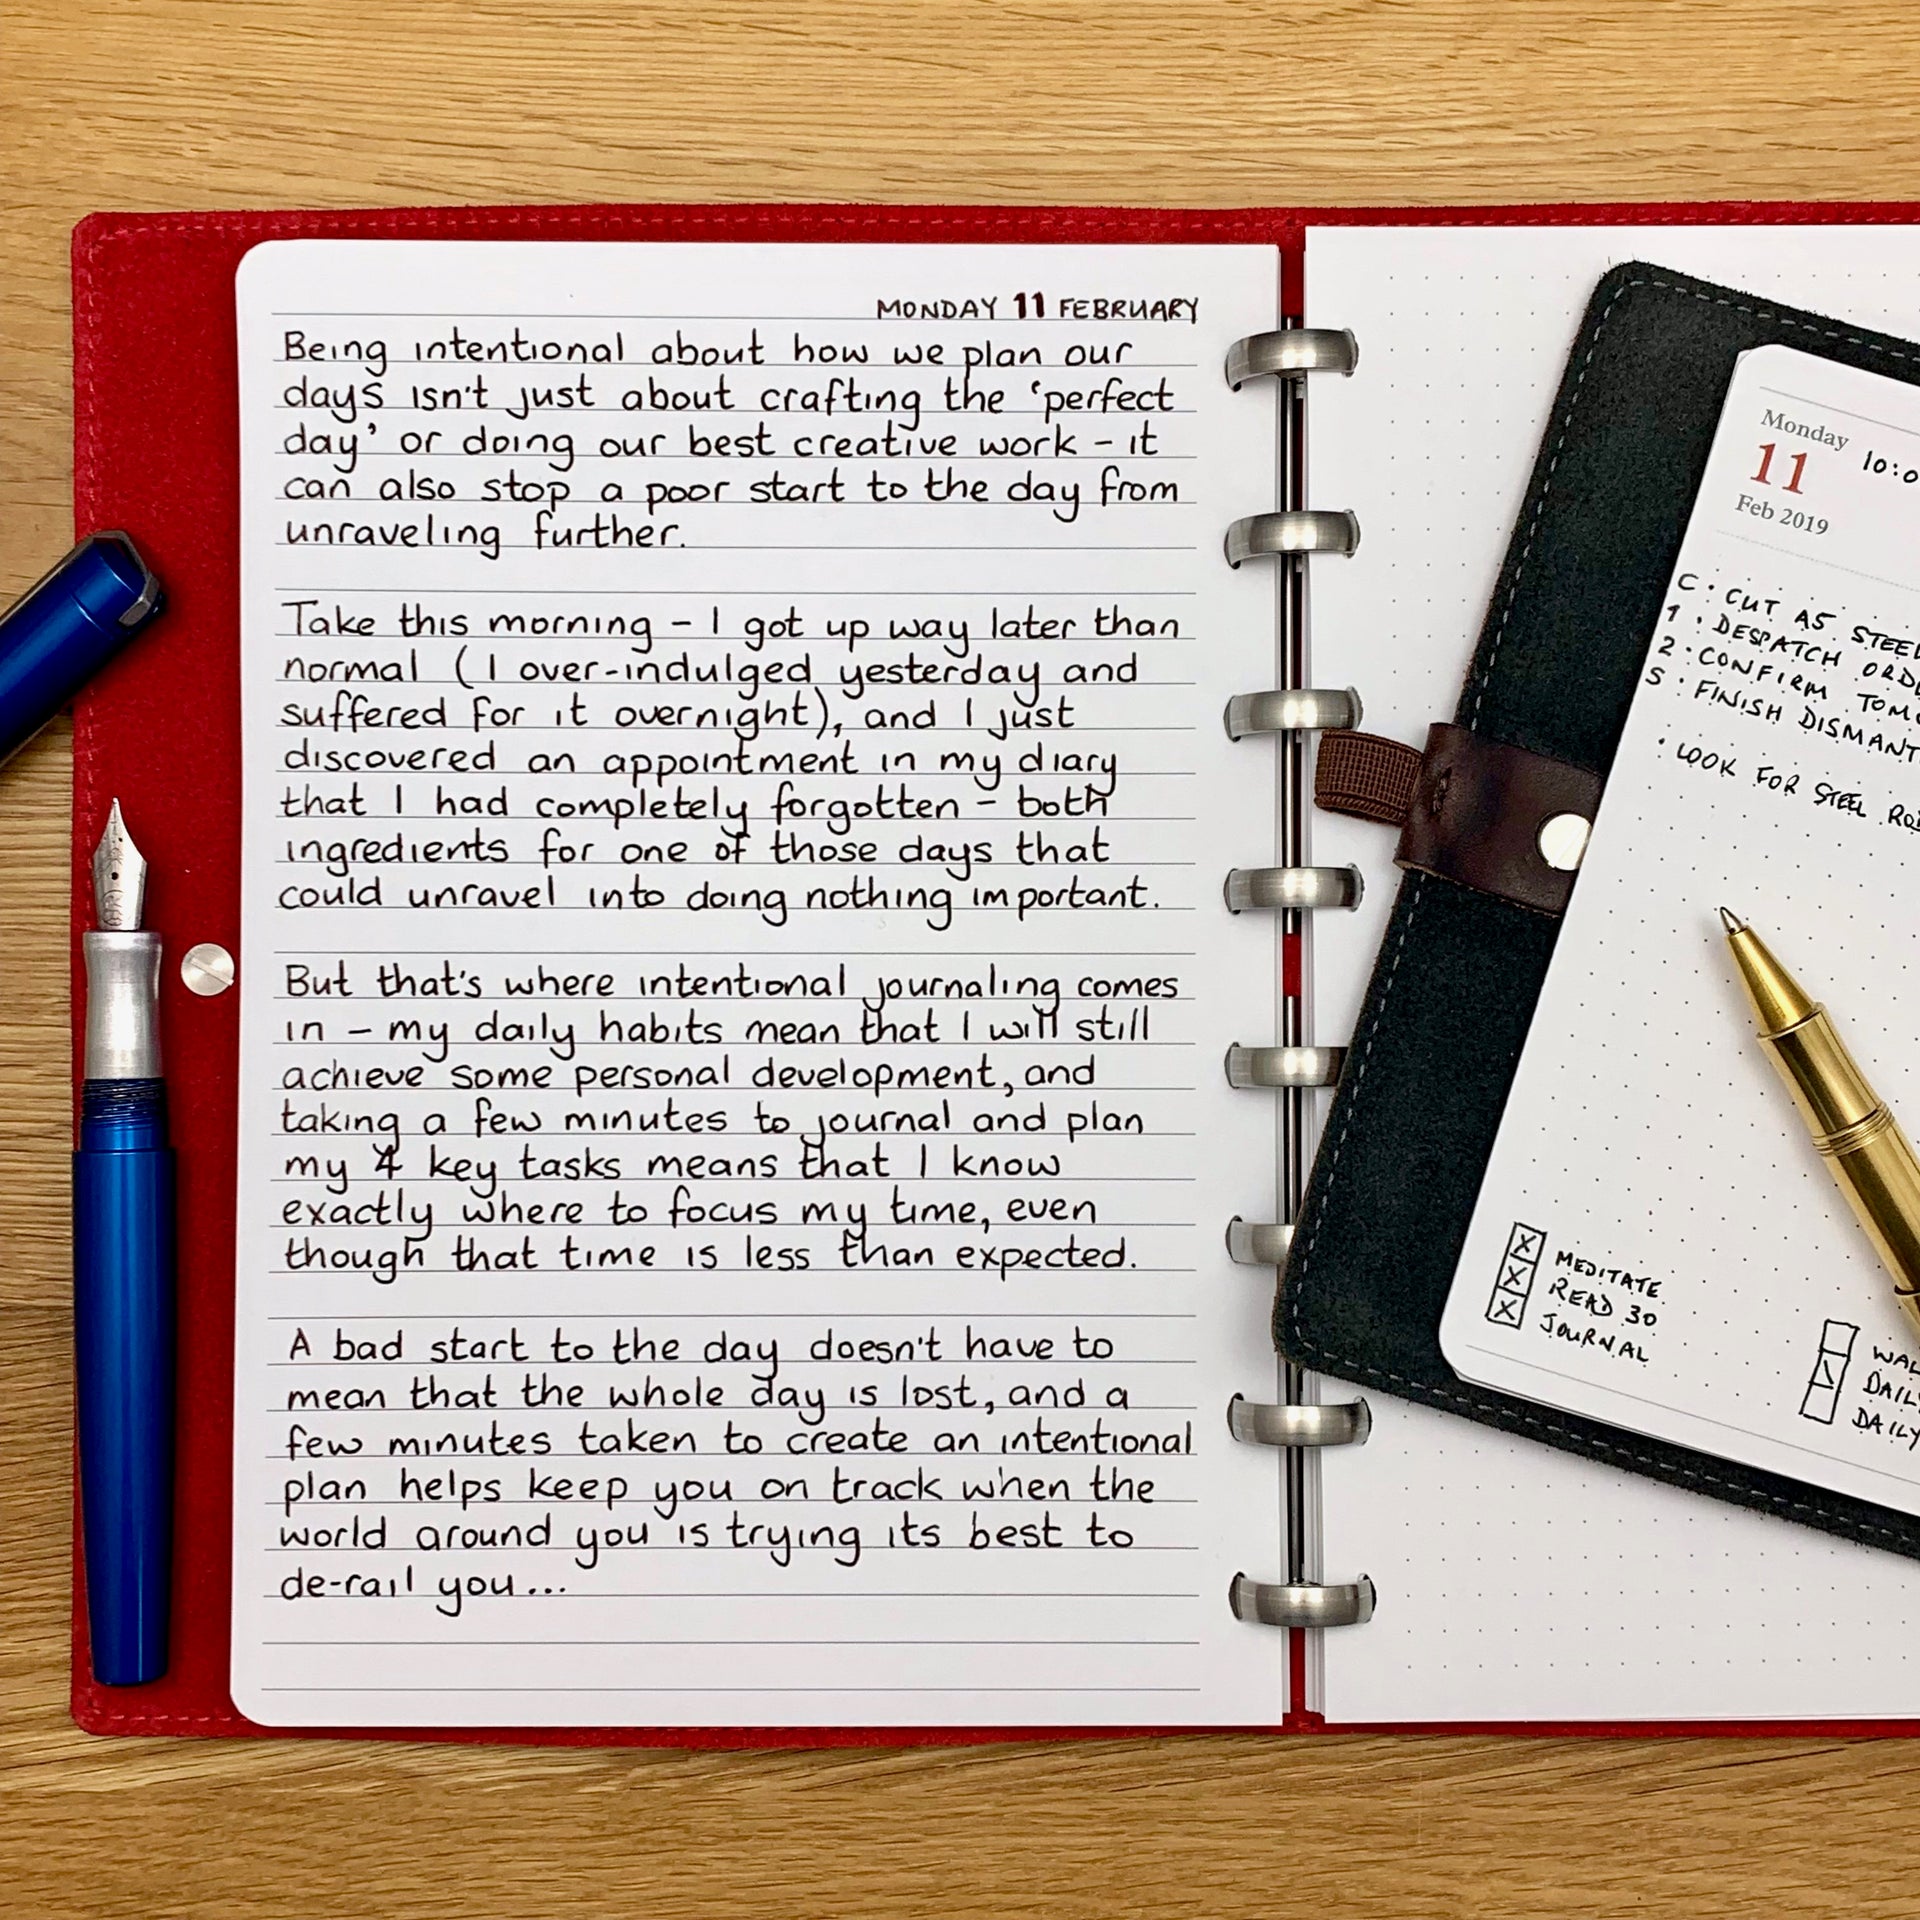 MONDAY 11 FEBRUARY
Being intentional about how we plan our
days isn't just about crafting the 'perfect
day' or doing our best creative work – it
can also stop a poor start to the day from
unraveling further.
Take this morning – I got up way later than
normal (I over-indulged yesterday and
suffered for it overnight), and I just
discovered an appointment in my diary
that I had completely forgotten – both
ingredients for one of those days that
could unravel into doing nothing important.
But that's where intentional journaling comes
in – my daily habits mean that I will still
achieve some personal development, and
taking a few minutes to journal and plan
my 4 key tasks means that I know
exactly where to focus my time, even
though that time is less than expected.
A bad start to the day doesn't have to
mean that the whole day is lost, and a
few minutes taken to create an intentional
plan helps keep you on track when the
world around you is trying its best to
de-rail you...
Monday
11
Feb 2019
10:0
C • CUT A5 STEEL
1 • DESPATCH
2 • CONFIRM
S • FINISH
• LOOK FOR STEEL
MEDITATE
READ 30
JOURNAL
DAILY